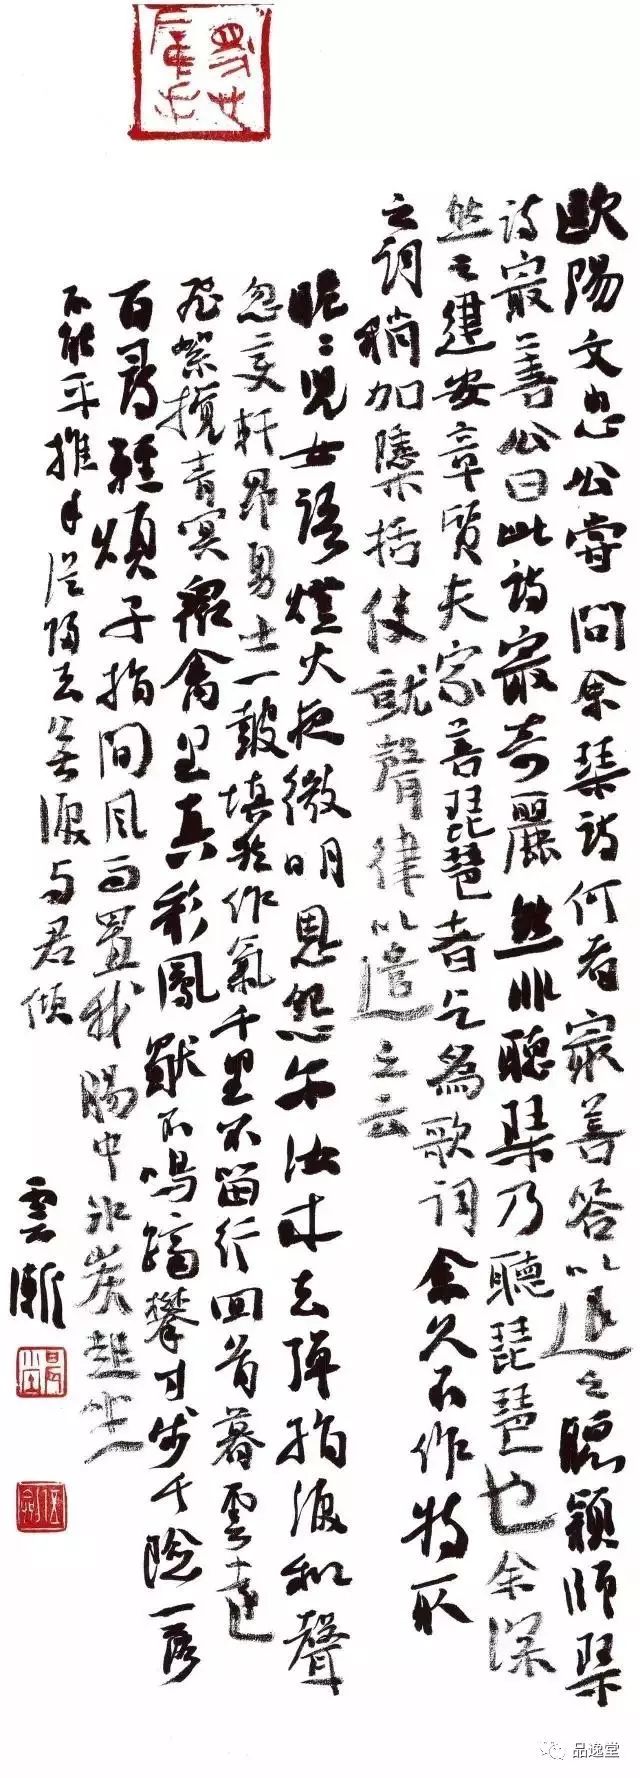 歐陽文忠公嘗問余琴詩何者最善答以退之聽穎師琴
詩最善公曰此詩最奇麗然非聽琴乃聽琵琶也余深
然之建安章質夫家善琵琶者乞為歌詞余久不作特取
之詞稍加檃括使就聲律以遺之云
昵〻兒女語燈火夜微明恩怨尔汝來去彈指淚和聲
忽變軒昂勇士一鼓填然作氣千里不留行回首暮雲遠
飛絮攪青冥衆禽里真彩鳳獨不鳴躋攀寸步千險一落
百尋輕煩子指間風雨置我腸中冰炭起坐
不能平推手從歸去無淚與君傾
雲漸
品逸堂